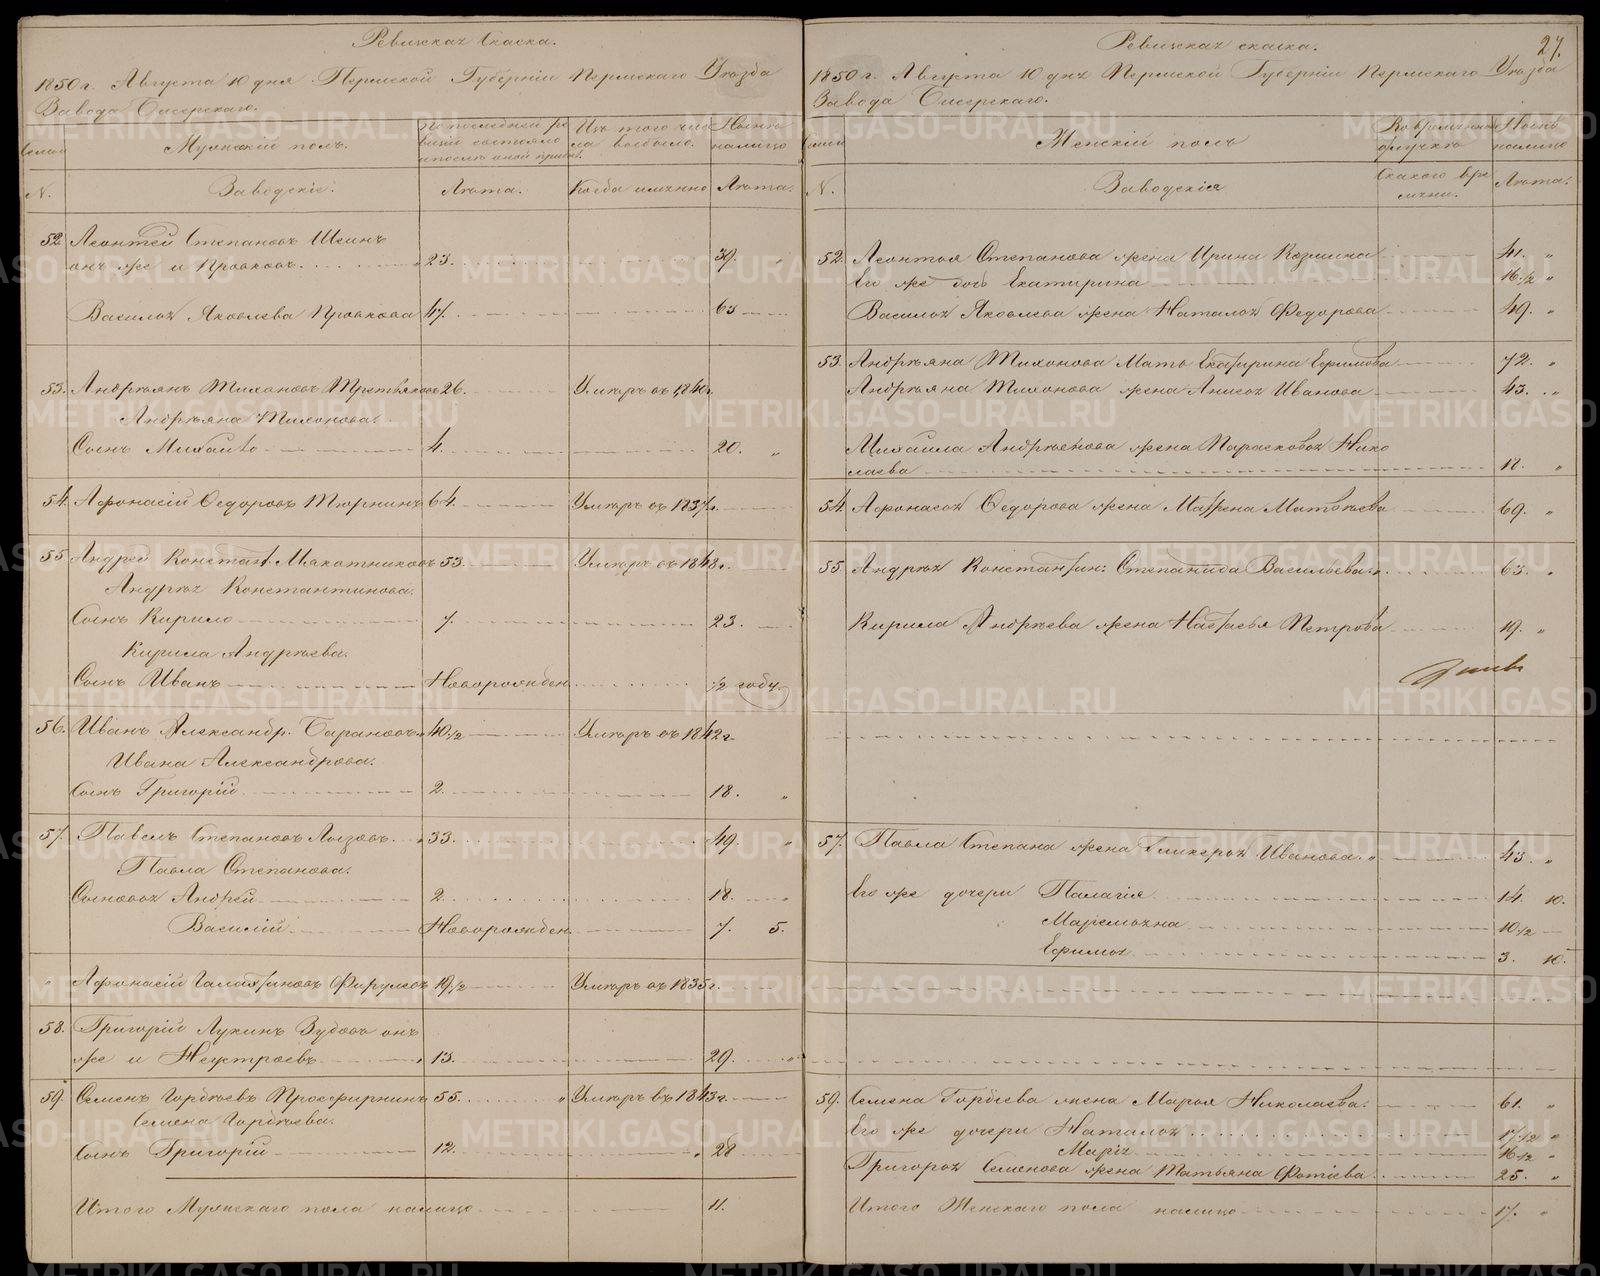 Ревизская Сказка.
1850 г. Августа 10 дня Пермской Губерніи Пермскаго Уѣзда
Завода Бисерскаго.
Мужескій полъ.
По последней ре
визіи состояло
и послѣ оной прибы
Изъ того чис
ла выбыло.
Нынѣ
на лицо
N.
Заводскіе.
Лѣта.
Когда именно
Лѣта.
52 Леонтей Степановъ Шеинъ
онъ же и Провковъ. 23. 39.
Василья Яковлева Провкова 47. 63
53. Андреянъ Тихоновъ Третьяковъ 26. Умеръ въ 1840 г.
Андреяна Тихонова.
Сынъ Михайло 4. 20. "
54. Афонасій Федоровъ Тюрнинъ 64. Умеръ въ 1837 г.
55 Андрей Констант. Мякотниковъ 53. Умеръ въ 1848 г.
Андрея Константинова.
Сынъ Кирило 7. 23.
Кирила Андреева.
Сынъ Иванъ Новорожден. 1/2 году.
56. Иванъ Александр. Барановъ 40 1/2 Умеръ въ 1842 г.
Ивана Александрова.
Сынъ Григорій 2. 18. "
57. Павелъ Степановъ Лызовъ. 33. 49. "
Павла Степанова.
Сыновья Андрей 2. 18. "
Василій Новорожден. 7. 5.
" Афонасій Галахтіновъ Фирулевъ 19 1/2 Умеръ въ 1835 г.
58. Григорій Лукинъ Зубовъ онъ
же и Неустроевъ 13. 29. "
59. Семенъ Гордѣевъ Просфирнинъ 55. " Умеръ въ 1843 г.
Семена Гордѣева.
Сынъ Григорій 12. 28
Итого Мужскаго пола налицо 11.
27.
Ревизская сказка.
1850 г. Августа 10 дня Пермской Губерніи Пермскаго Уѣзда
Завода Бисерскаго.
Женскій полъ
Во временной
отлучкѣ
Нынѣ
налицо
N.
Заводскія
Съ какого вре
мени.
Лѣта.
52. Леонтья Степанова жена Ирина Козмина 41. "
Его же дочь Екатирина 16 1/2 "
Василья Яковлева жена Наталья Федорова 49. "
53. Андреяна Тихонова Мать Екатирина Ефимова 72. "
Андреяна Тихонова жена Анисья Иванова 43. "
Михаила Андреянова жена Парасковья Нико
лаева "
54. Афонасья Федорова жена Матрена Матвѣева 69. "
55. Андрея Константин: Степанида Васильева 63. "
Кирила Андреева жена Настасья Петрова 19. "
57. Павла Степана жена Гликерья Иванова. " 43. "
Его же дочери Палагія 14. 10.
Маремьяна 10 1/2
Ефимья 3. 10.
59. Семена Гордіева жена Марья Николаева. 61. "
Его же дочери Наталья 17 1/2 "
Марія 16 1/2 "
Григорья Семенова жена Татьяна Фотіева 25. "
Итого Женскаго пола налицо 17. "
METRIKI.GASO-URAL.RU